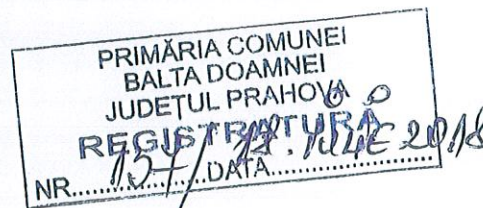 PRIMĂRIA COMUNEI
BALTA DOAMNEI
JUDEȚUL PRAHOVA
REGISTRATURĂ
NR. DATA 2018